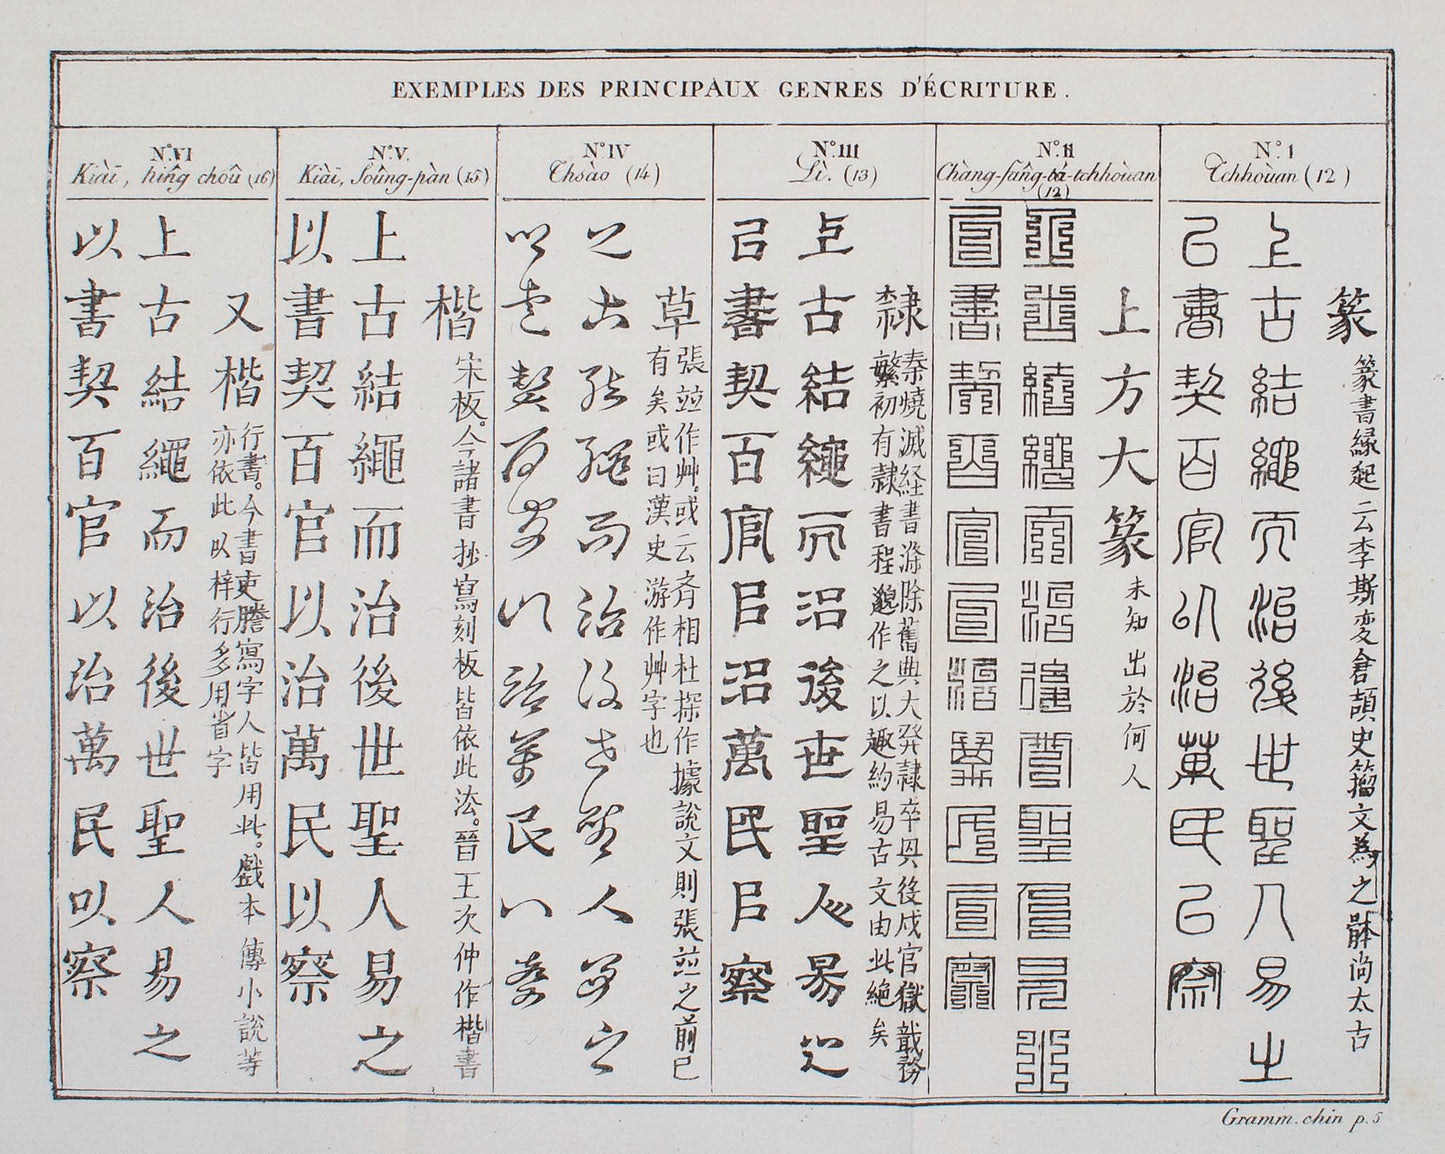 EXEMPLES DES PRINCIPAUX GENRES D'ÉCRITURE.
Nº. I
Tchhoùan (12)
篆
篆書緣起云李斯変倉頡史籀文為之體尚太古
上古結繩而治後世聖人易之
已書契百官以治萬民已察
Nº. II
Chàng-fâng-tá-tchhoùan
(12)
上方大篆
未知出於何人
上古結繩而治後世聖人易之
已書契百官已治萬民已察
Nº. III
Lì. (13)
隸
秦燒滅経書滌除舊典大発隸卒興後戍官獄職務
繁初有隸書程邈作之以趣約易古文由此絶矣
上古結繩而治後世聖人易之
已書契百官㠯治萬民㠯察
Nº. IV
Thsào (14)
草
張並作艸。或云斉相杜探作據說文則張並之前已
有矣或曰漢史游作艸字也
上古結繩而治後世聖人易之
以書契百官以治萬民以察
Nº. V.
Kiài, Soûng-pàn (15)
楷
宋板。今諸書抄寫刻板皆依此法。晉王次仲作楷書
上古結繩而治後世聖人易之
以書契百官以治萬民以察
Nº. VI
Kiài, hîng choû (16)
又楷
行書。今書吏謄寫字人皆用此。戲本傳小說等
亦依此以梓行多用省字
上古結繩而治後世聖人易之
以書契百官以治萬民以察
Gramm. chin p. 5